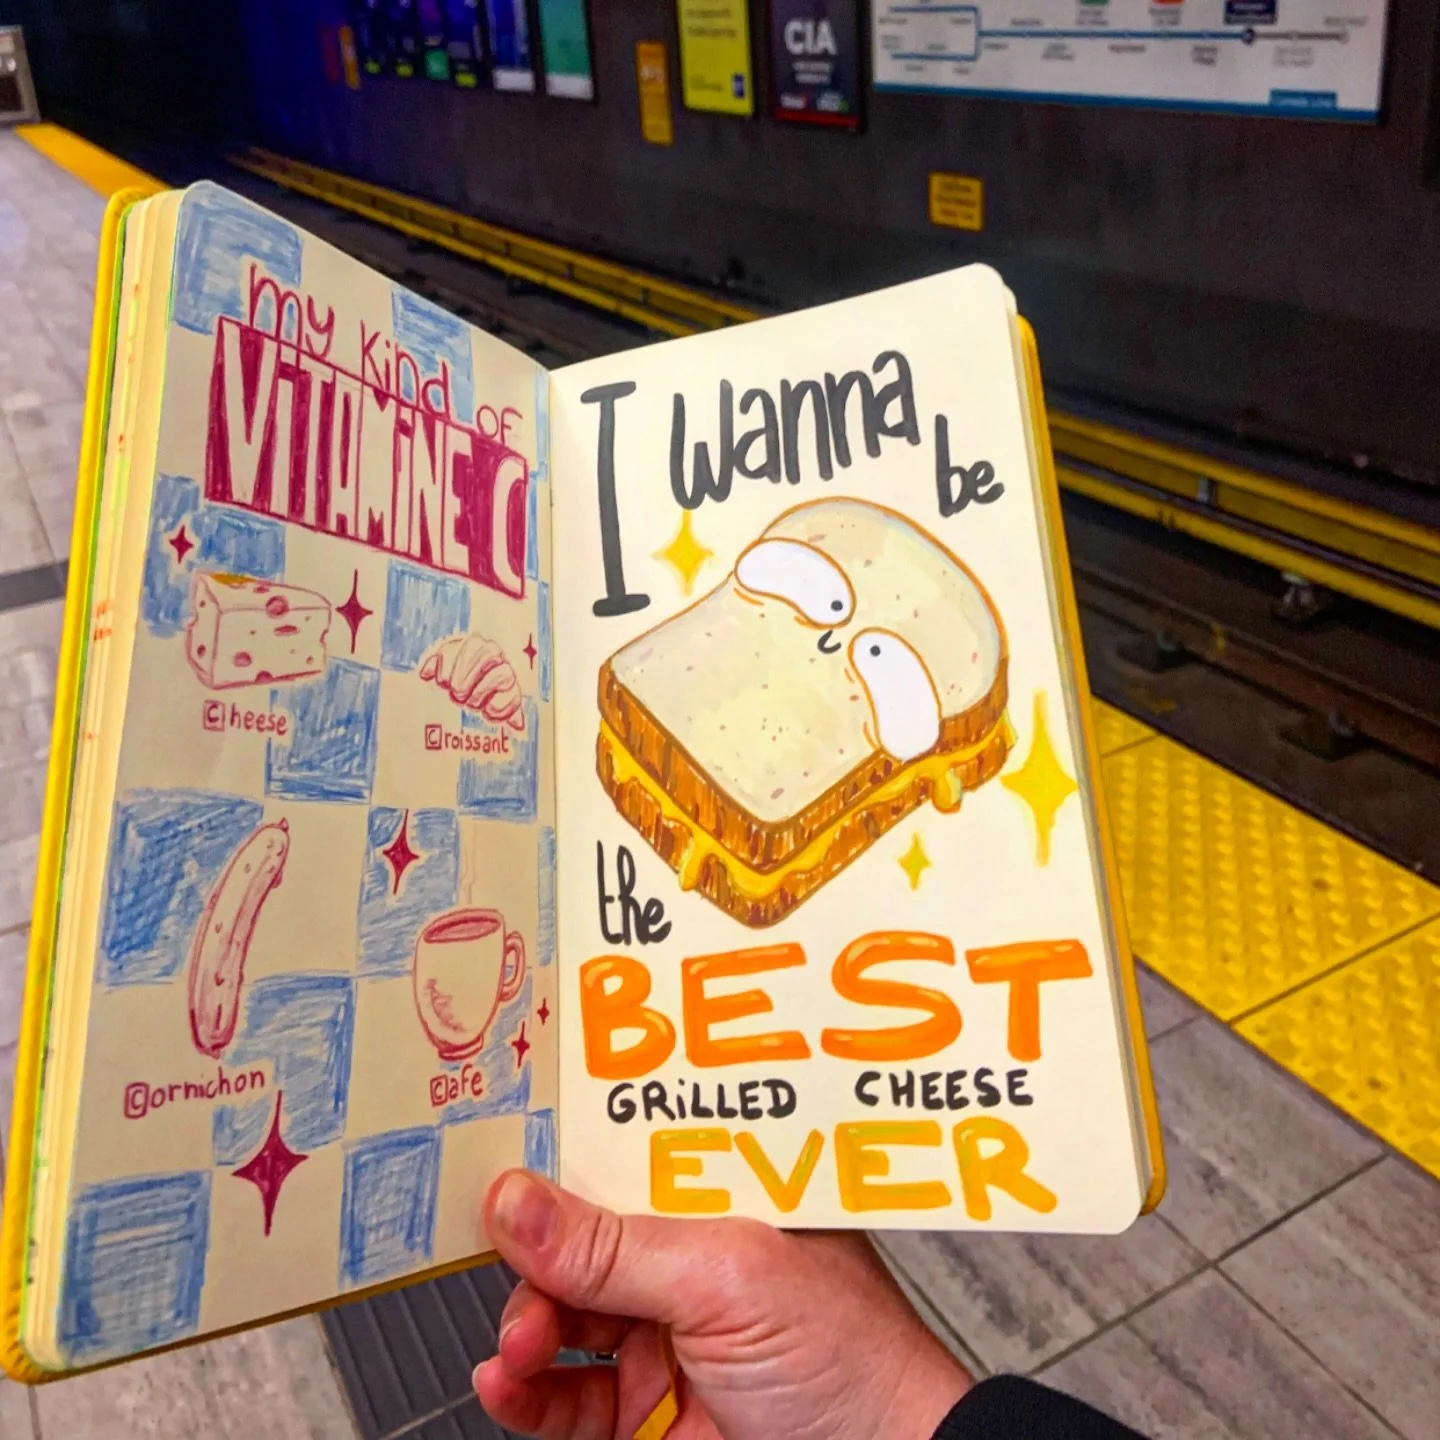 my kind of
VITAMINE C
Cheese
Croissant
Cornichon
Cafe
I wanna
be
the
BEST
GRiLLED CHEESE
EVER
CIA